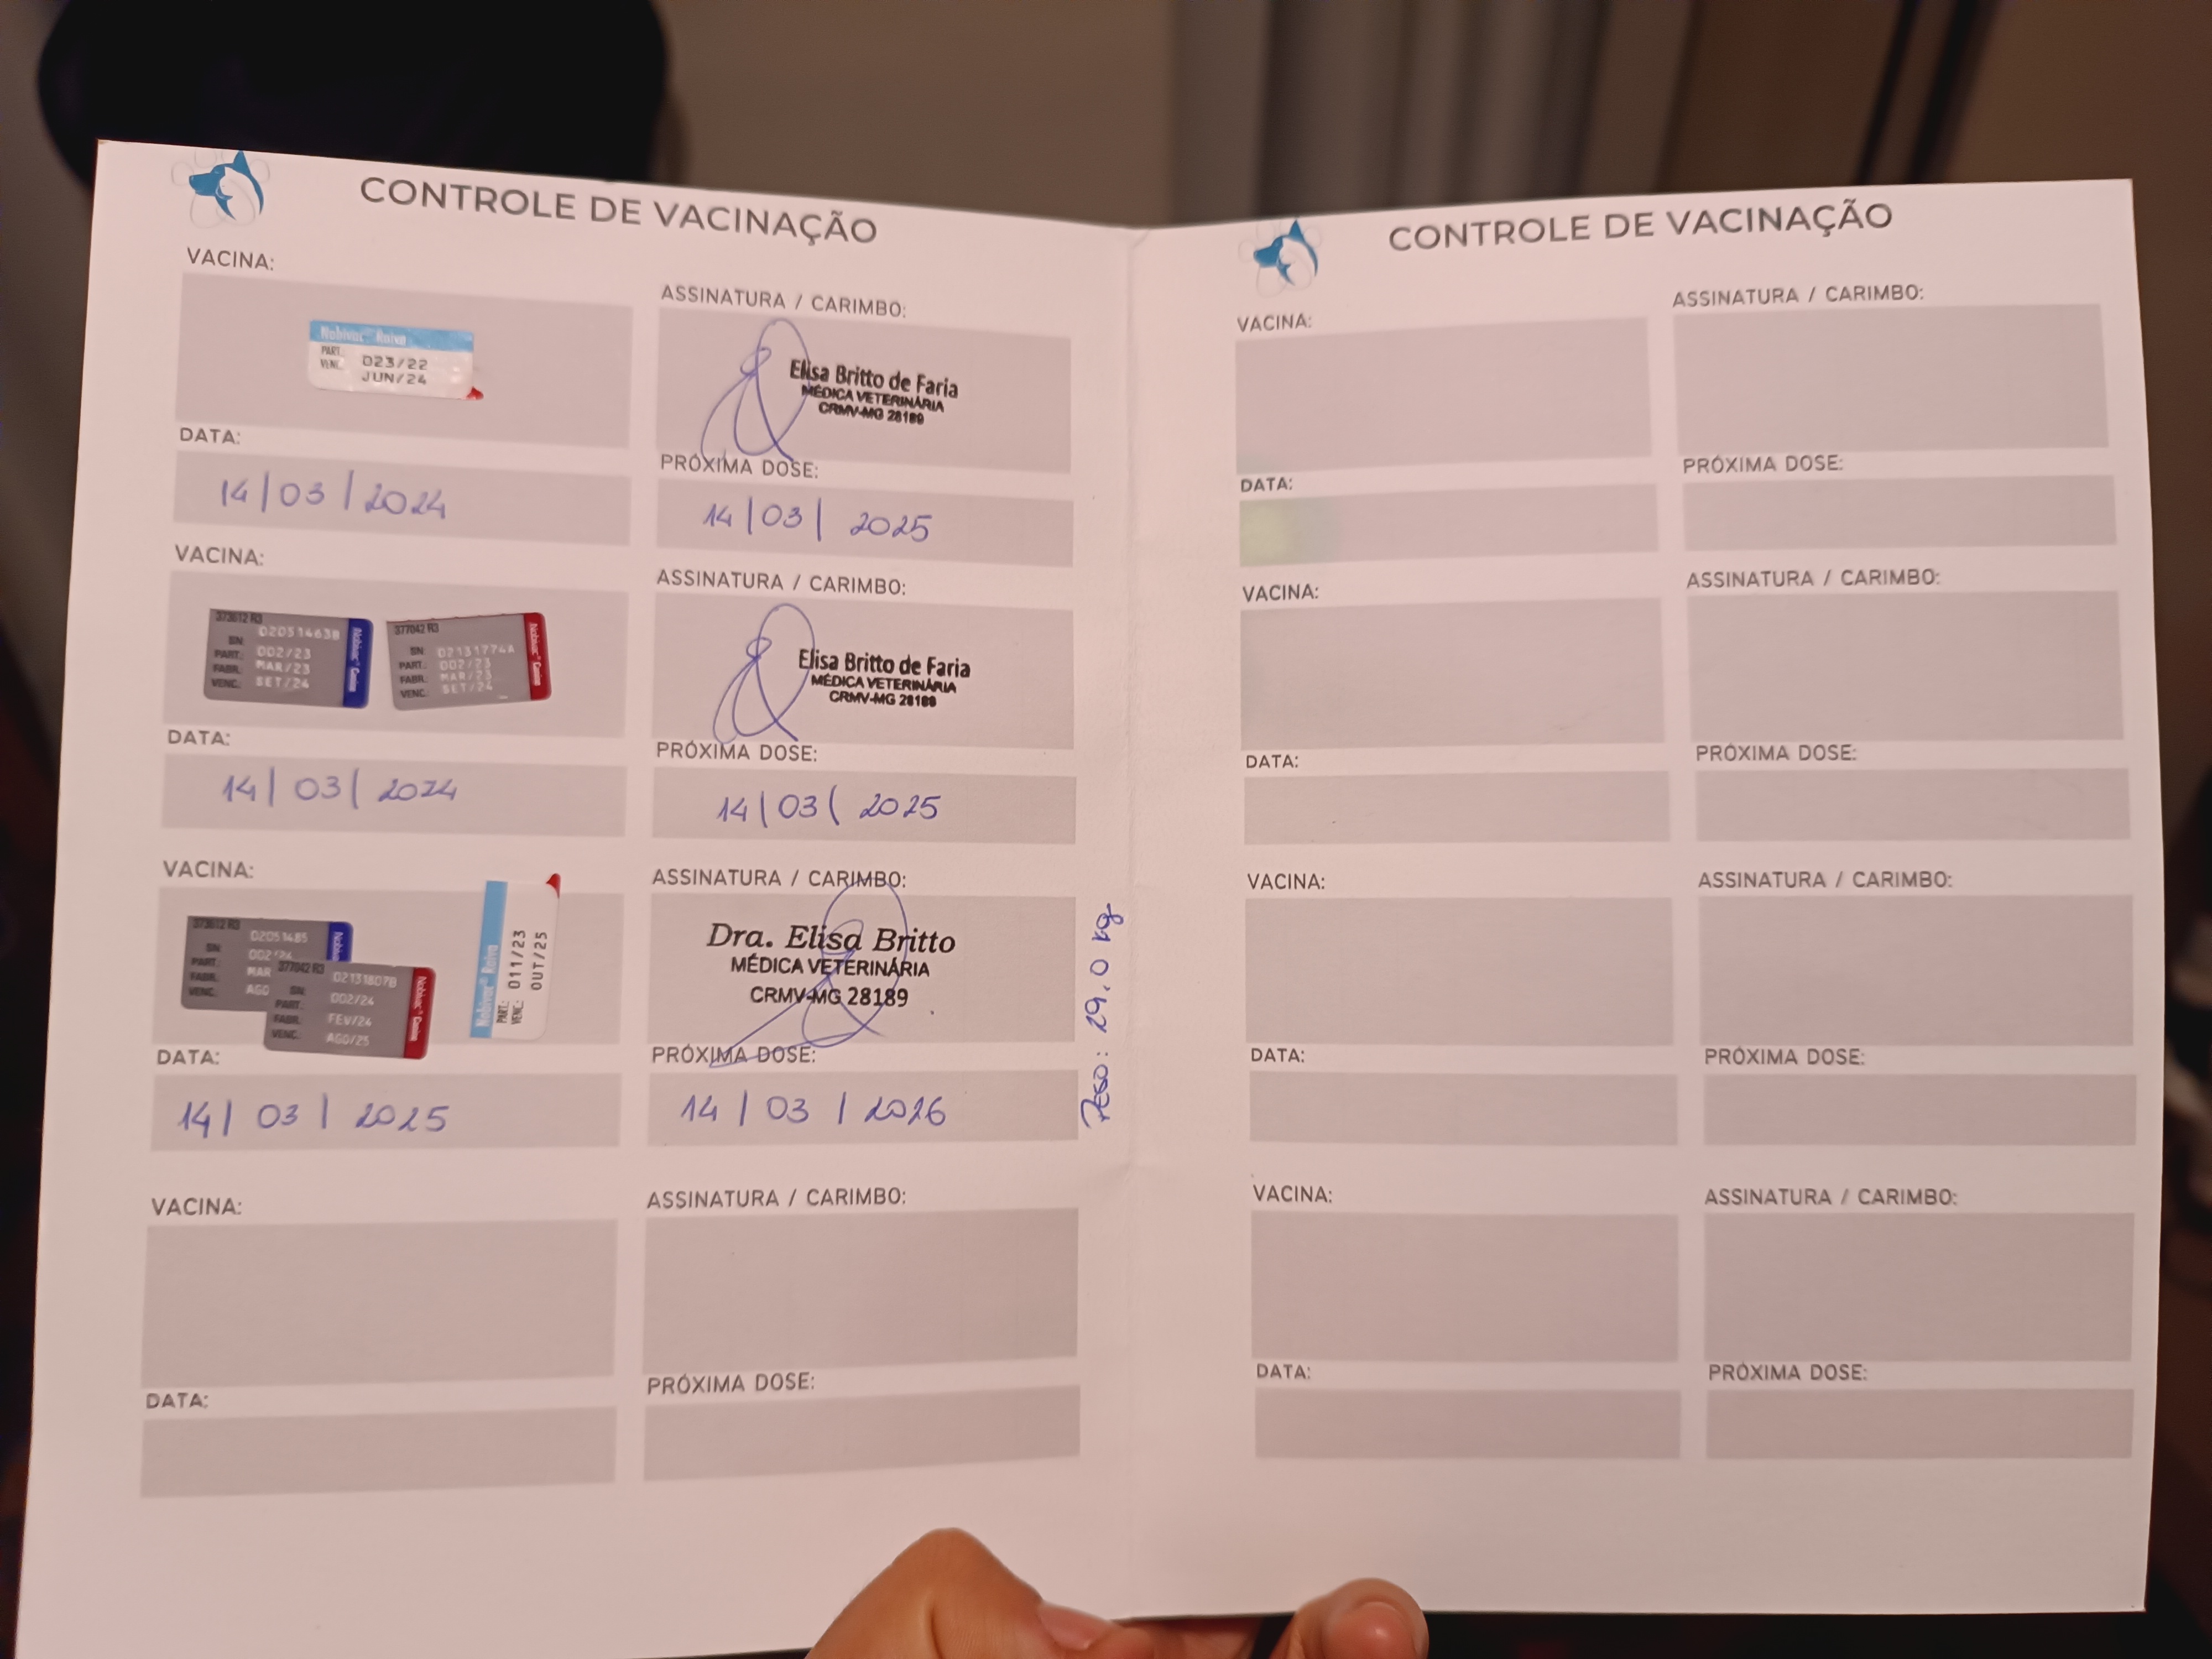 CONTROLE DE VACINAÇÃO
VACINA:
Nobivac Raiva
PART. 023/22
VENC. JUN/24
ASSINATURA / CARIMBO:
Elisa Britto de Faria
MÉDICA VETERINÁRIA
CRMV-MG 28189
DATA:
14/03/2024
PRÓXIMA DOSE:
14/03/2025
VACINA:
373612 R3
SN: 02051463B
PART.: 002/23
FABR.: MAR/23
VENC.: SET/24
Nobivac Canine
377042 R3
SN: 02131774A
PART.: 002/23
FABR.: MAR/23
VENC.: SET/24
Nobivac Canine
ASSINATURA / CARIMBO:
Elisa Britto de Faria
MÉDICA VETERINÁRIA
CRMV-MG 28189
DATA:
14/03/2024
PRÓXIMA DOSE:
14/03/2025
VACINA:
373612 R3
02051485
SN:
PART.: 002/24
FABR.: MAR
VENC.: AGO
377042 R3
02131807B
SN:
PART.: 002/24
FABR.: FEV/24
VENC.: AGO/25
Nobivac Canine
Nobivac Raiva
PART.: 011/23
VENC.: OUT/25
ASSINATURA / CARIMBO:
Dra. Elisa Britto
MÉDICA VETERINÁRIA
CRMV-MG 28189
DATA:
14/03/2025
PRÓXIMA DOSE:
14/03/2026
Peso: 29,0 kg
VACINA:
ASSINATURA / CARIMBO:
DATA:
PRÓXIMA DOSE:
CONTROLE DE VACINAÇÃO
VACINA:
ASSINATURA / CARIMBO:
DATA:
PRÓXIMA DOSE:
VACINA:
ASSINATURA / CARIMBO:
DATA:
PRÓXIMA DOSE:
VACINA:
ASSINATURA / CARIMBO:
DATA:
PRÓXIMA DOSE:
VACINA:
ASSINATURA / CARIMBO:
DATA:
PRÓXIMA DOSE: